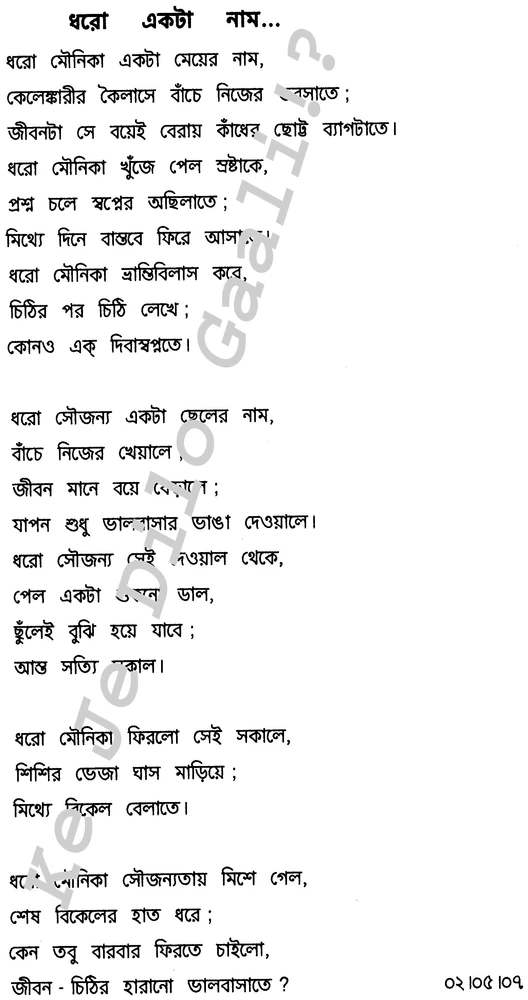 ধরো একটা নাম...
ধরো মৌনিকা একটা মেয়ের নাম,
কেলেঙ্কারীর কৈলাসে বাঁচে নিজের
জীবনটা সে বয়েই বেরায় কাঁধের ছোট্ট ব্যাগটাতে।
ধরো মৌনিকা খুঁজে পেল স্রষ্টাকে,
প্রশ্ন চলে স্বপ্নের অছিলাতে ;
মিথ্যে দিনে বাস্তবে ফিরে
ধরো মৌনিকা ভ্রান্তিবিলাস কবে,
চিঠির পর চিঠি লেখে ;
কোনও এক্ দিবাস্বপ্নতে।
ধরো সৌজন্য একটা ছেলের নাম,
বাঁচে নিজের খেয়ালে ,
জীবন মানে বয়ে বেড়ালে ;
যাপন শুধু ভালবাসার ভাঙা দেওয়ালে।
ধরো সৌজন্য সেই দেওয়াল থেকে,
পেল একটা ডাল,
ছুঁলেই বুঝি হয়ে যাবে ;
আস্ত সত্যি সকাল।
ধরো মৌনিকা ফিরলো সেই সকালে,
শিশির ভেজা ঘাস মাড়িয়ে ;
মিথ্যে বিকেল বেলাতে।
ধরো মৌনিকা সৌজন্যতায় মিশে গেল,
শেষ বিকেলের হাত ধরে ;
কেন তবু বারবার ফিরতে চাইলো,
জীবন - চিঠির হারানো ভালবাসাতে ? ০২।০৫।০৭
Ke Je Dilo Gaali!?